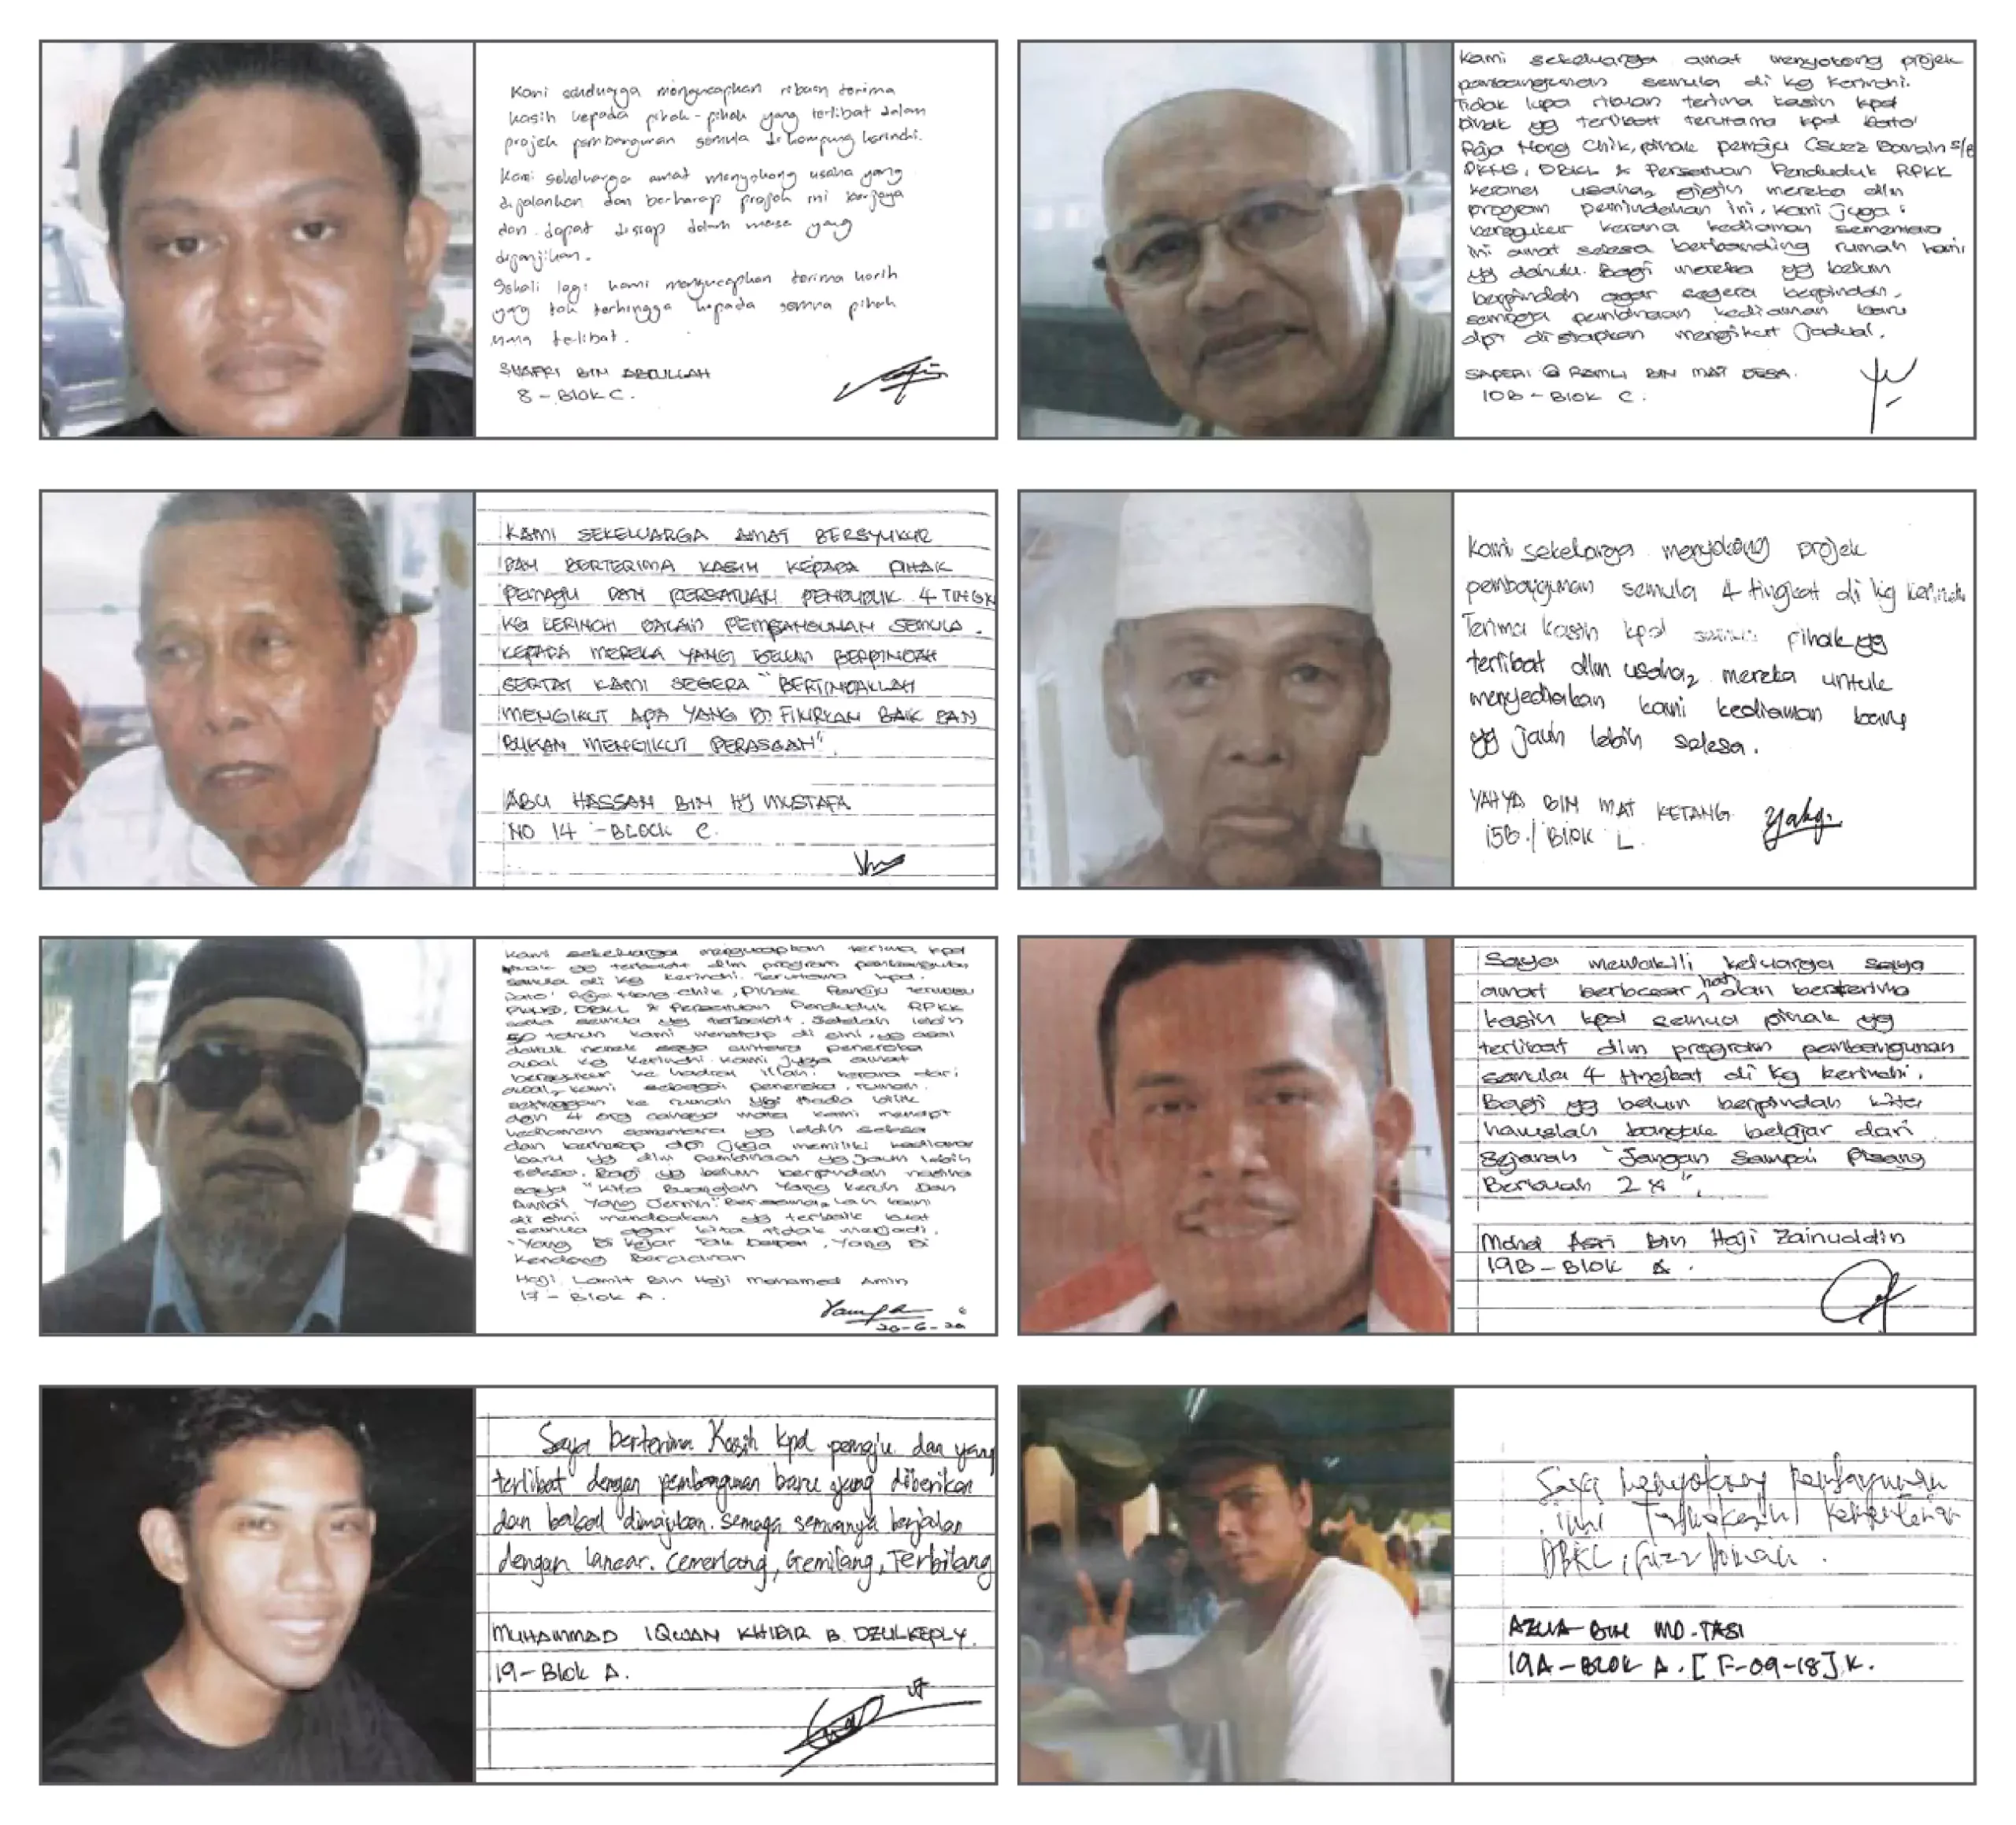 Kami sekeluarga mengucapkan ribuan terima
kasih kepada pihak-pihak yang terlibat dalam
projek pembangunan semula di kampung kerinchi.
Kami sekeluarga amat menyokong usaha yang
dijalankan dan berharap projek ini berjaya
dan dapat disiap dalam masa yang
dijanjikan.
Sekali lagi kami mengucapkan terima kasih
yang tak terhingga kepada semua pihak
yang terlibat.
SHAFRI BIN ABDULLAH
8 - BLOK C.
Kami sekeluarga amat menyokong projek
pembangunan semula di kg Kerinchi.
Tidak lupa ribuan terima kasih kpd
pihak yg terlibat terutama kpd Dato'
Raja Nong Chik, pihak pemaju (Suez Domain S/B
PKNS, DBKL & Persatuan Penduduk RPKK
kerana usaha2 gigih mereka dlm
program pemindahan ini. Kami juga
bersyukur kerana kediaman sementara
ini amat selesa berbanding rumah kami
yg dahulu. Bagi mereka yg belum
berpindah agar segera berpindah.
semoga pembinaan kediaman baru
dpt disiapkan mengikut jadual.
SAPERI @ RAMLI BIN MAT DESA.
10B - BLOK C.
KAMI SEKELUARGA AMAT BERSYUKUR
DAN BERTERIMA KASIH KEPADA PIHAK
PEMAJU DAN PERSATUAN PENDUDUK 4 TINGK
KG KERINCHI DALAM PEMBANGUNAN SEMULA.
KEPADA MEREKA YANG BELUM BERPINDAH
SERTAI KAMI SEGERA "BERTINDAKLAH
MENGIKUT APA YANG DI FIKIRKAN BAIK DAN
BUKAN MENGIKUT PERASAAN".
ABU HASSAN BIN HJ MUSTAFA
NO 14 - BLOCK C.
Kami sekelarga menyokong projek
pembangunan semula 4 tingkat di kg kerinchi
Terima kasih kpd semua pihak yg
terlibat dlm usaha2 mereka untuk
menyediakan kami kediaman
yg jauh lebih selesa.
YAHYA BIN MAT KETANG
15B / BLOK L.
Kami sekeluarga mengucapkan terima kpd
pihak yg terlibat dlm program pembangunan
semula di kg kerinchi. Terutama kpd.
Dato' Raja Nong Chik, Pihak Pemaju
PKNS, DBKL & Persatuan Penduduk RPKK
serta semua yg terlibat. Setelah lebih
50 tahun kami menetap di sini, yg asal
datuk nenek saya antara peneroka
awal kg Kerinchi. Kami juga amat
bersyukur ke hadrat Illahi kerana dari
awal2 kami sebagai peneroka, rumah
setinggan ke rumah yg tiada bilik
dgn 4 org cahaya mata kami menapt
kediaman sementara yg lebih selesa
dan berharap dpt juga memiliki kediaman
baru yg dlm pembinaan yg jauh lebih
selesa. Bagi yg belum berpindah nasihat
saya "Kita Buanglah Yang Keruh Dan
Ambil Yang Jernih". Bersama2 lah kami
di sini mendoakan yg terbaik buat
semua agar kita tidak menjadi.
"Yang Di Kejar Tak Dapat, Yang Di
Kendong Berciciran
Haji Lamit Bin Haji Mohamed Amin
17 - Blok A.
Saya mewakili keluarga saya
amat berbesar hati dan berterima
kasih kpd semua pihak yg
terlibat dlm program pembangunan
semula 4 tingkat di kg kerinchi.
Bagi yg belum berpindah kita
haruslah belajar dari
sejarah "Jangan Sampai Pisang
Berbuah 2 x".
Mohd Asri Bin Haji Zainuddin
19B - Blok A.
Saya berterima Kasih kpd pemaju dan yang
terlibat dengan pembangunan baru yang diberikan
dan bakal dimajukan. Semoga semuanya berjalan
dengan lancar. Cemerlang, Gemilang, Terbilang
MUHAMMAD IQWAN KHIDIR B. DZULKEPLY.
19 - Blok A.
Saya menyokong pembangunan
ini Terimakasih
DBKL,
BIN MD. TASI
19A - BLOK A. [F-09-18] K.